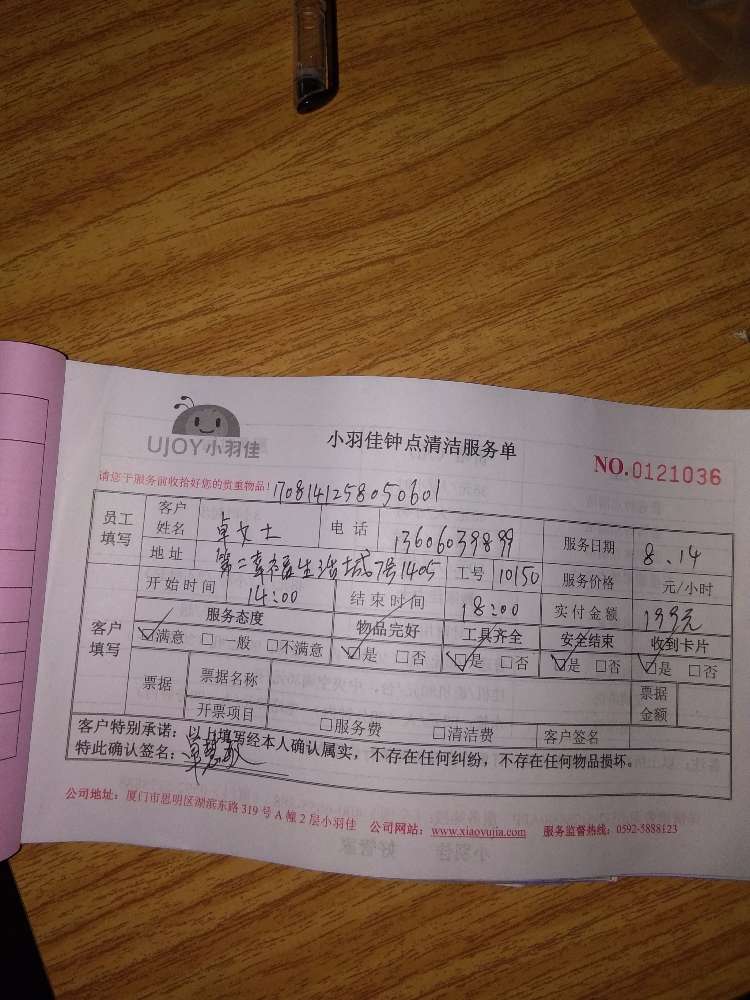 UJOY小羽佳
小羽佳钟点清洁服务单
NO.0121036
请您于服务前收拾好您的贵重物品! 1708141258050601
员工填写 客户姓名 卓女士 电话 13606039899 服务日期 8.14
地址 第二幸福生活城7号1405 工号 10150 服务价格 元/小时
客户填写 开始时间 14:00 结束时间 18:00 实付金额 199元
服务态度 物品完好 工具齐全 安全结束 收到卡片
☑满意 □一般 □不满意 ☑是 □否 ☑是 □否 ☑是 □否 ☑是 □否
票据 票据名称 票据金额
开票项目 □服务费 □清洁费 客户签名
客户特别承诺：以上填写经本人确认属实，不存在任何纠纷，不存在任何物品损坏。
特此确认签名：
公司地址：厦门市思明区湖滨东路319号A幢2层小羽佳 公司网站：www.xiaoyujia.com 服务监督热线：0592-5888123